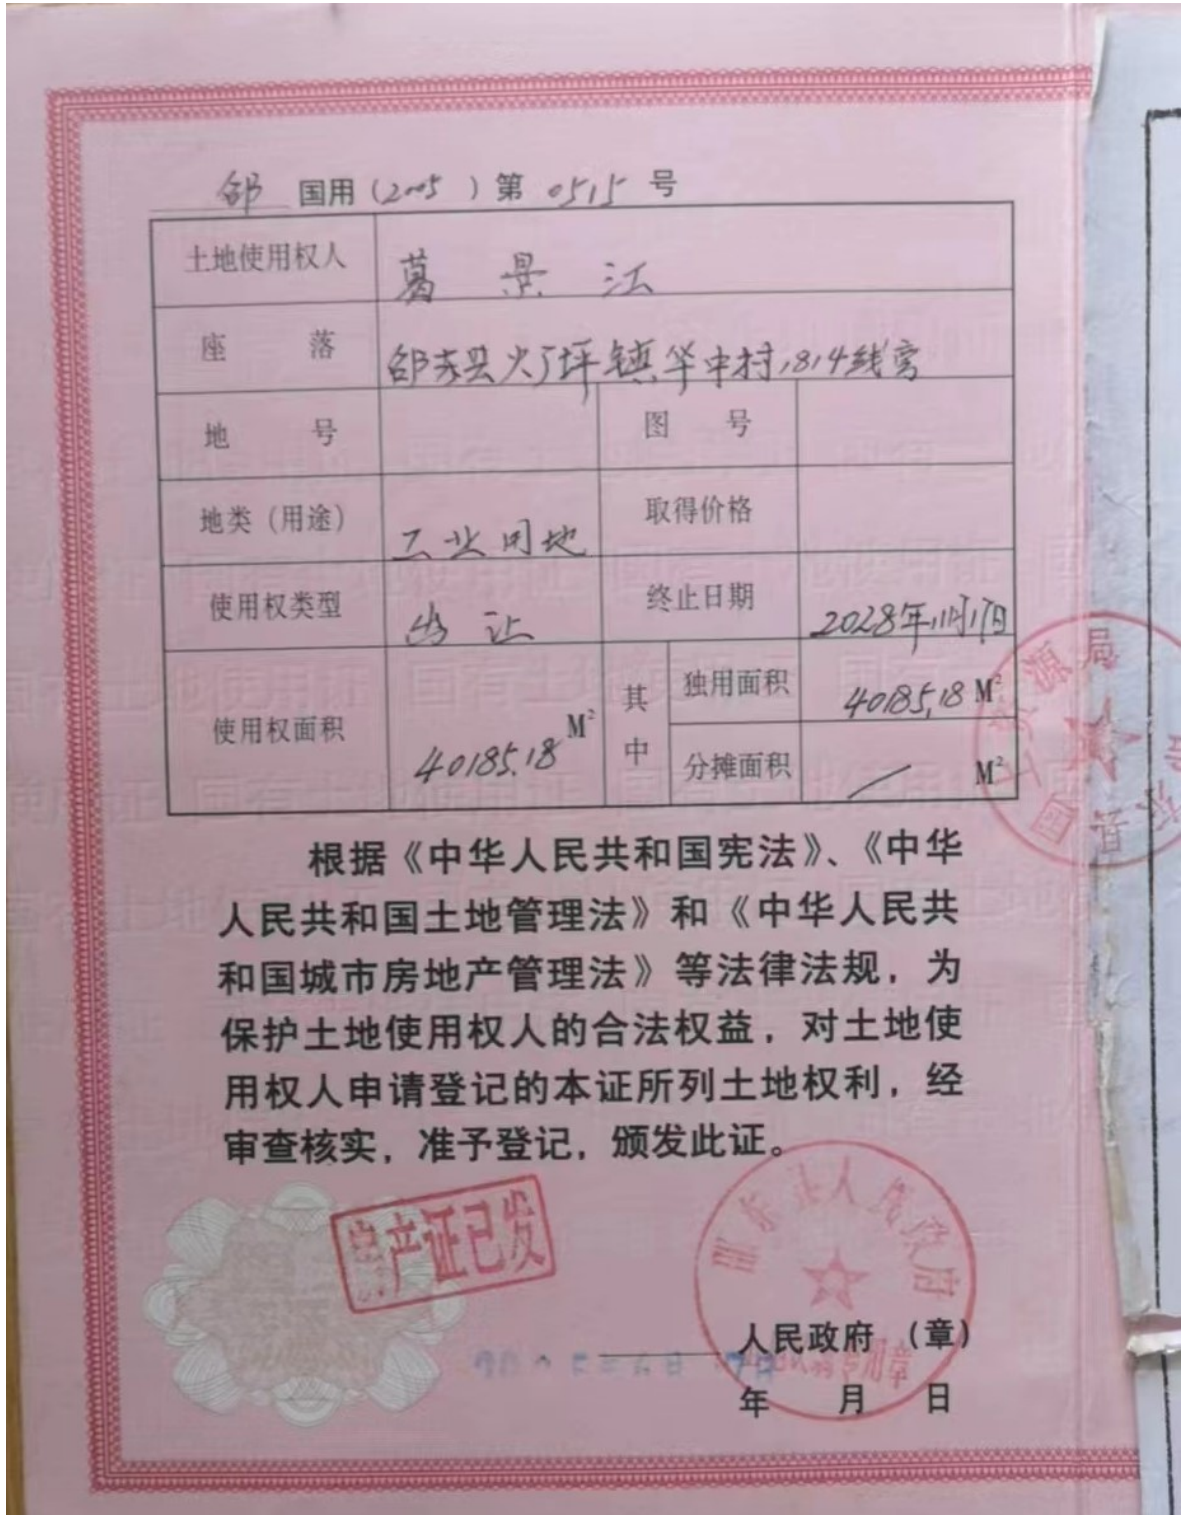 邵 国用（2005）第 0515 号
土地使用权人 葛景江
座落 邵东县火厂坪镇华中村,1814线旁
地号 图号
地类（用途） 工业用地 取得价格
使用权类型 出让 终止日期 2028年11月17日
使用权面积 40185.18 M² 其中 独用面积 40185.18 M²
分摊面积 / M²
根据《中华人民共和国宪法》、《中华
人民共和国土地管理法》和《中华人民共
和国城市房地产管理法》等法律法规，为
保护土地使用权人的合法权益，对土地使
用权人申请登记的本证所列土地权利，经
审查核实，准予登记，颁发此证。
产证已发
邵东县人民政府
人民政府（章）
专用章
年 月 日
国土资源局